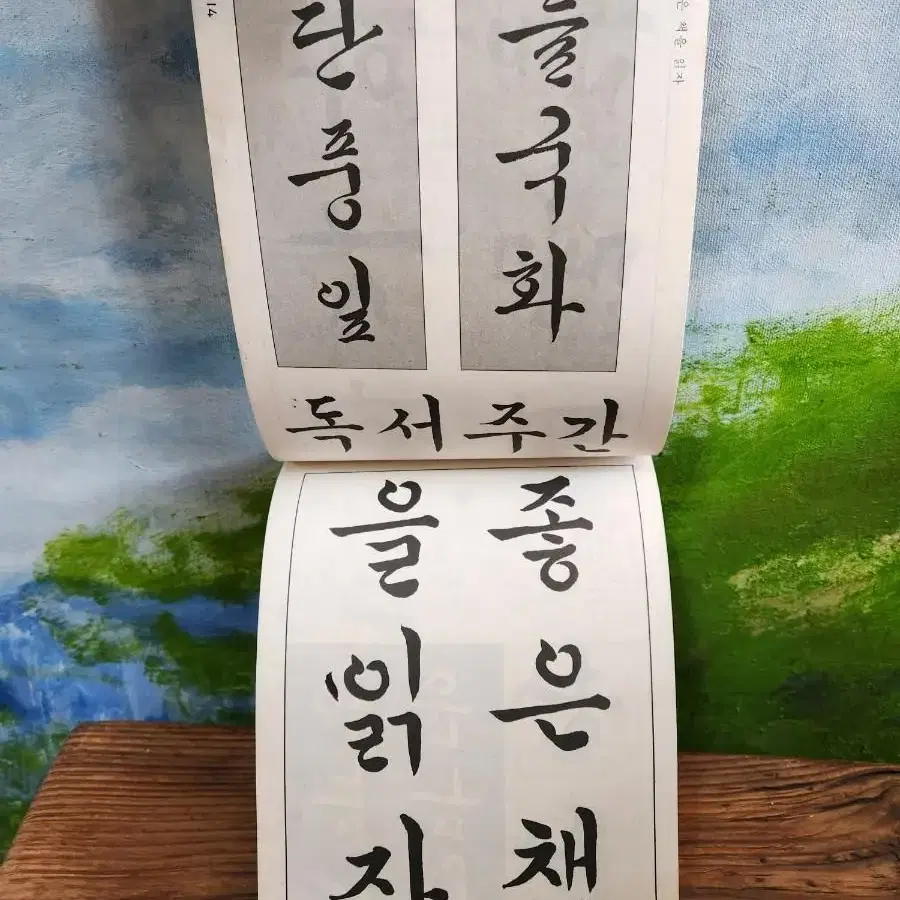 은 책을 읽자
들국화
단풍잎
14
독서주간
좋은책
을읽자